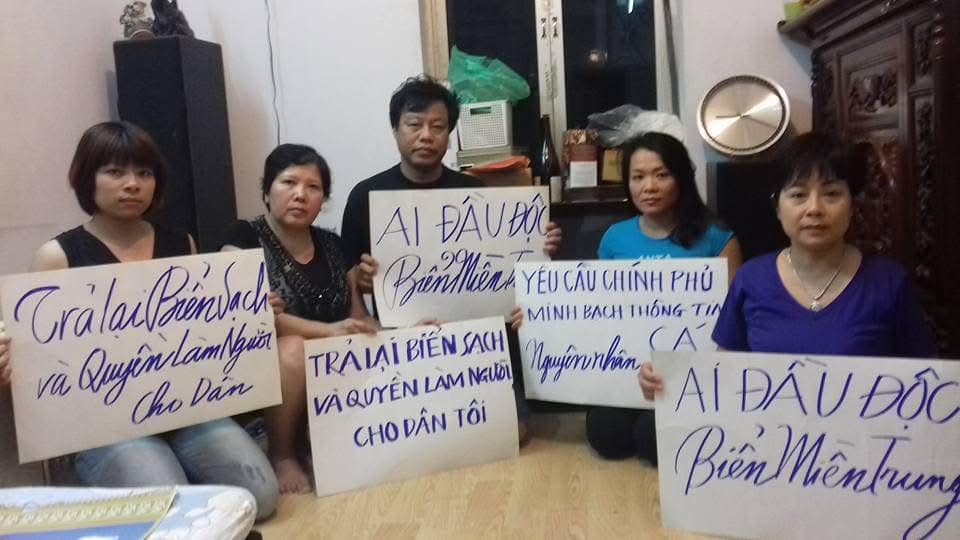 Trả lại Biển Sạch
và Quyền Làm Người
Cho Dân
TRẢ LẠI BIỂN SẠCH
VÀ QUYỀN LÀM NGƯỜI
CHO DÂN TÔI
AI ĐẦU ĐỘC
Biển Miền
YÊU CẦU CHÍNH PHỦ
MINH BẠCH THÔNG TIN
Nguyên nhân CÁ
AI ĐẦU ĐỘC
Biển Miền Trung